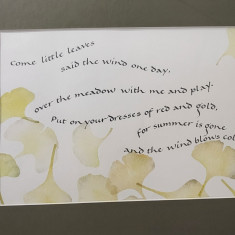 Come little leaves
said the wind one day,
over the meadow with me and play.
Put on your dresses of red and gold,
for summer is gone
and the wind blows col